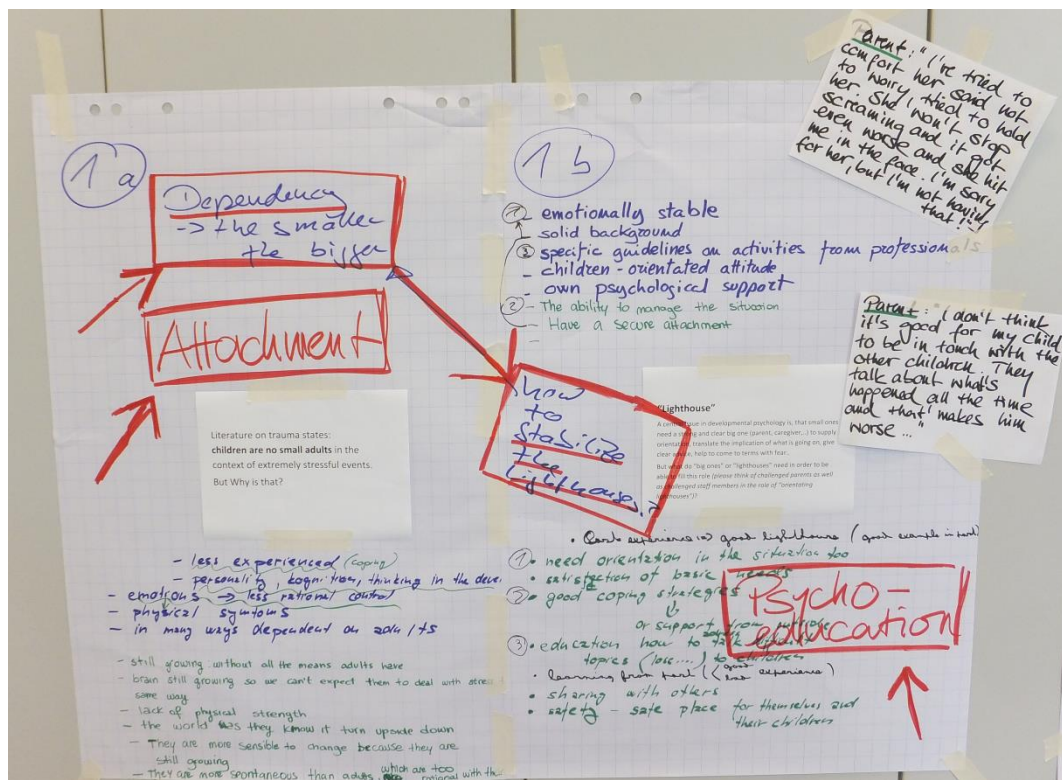 1a
Dependency
-> the smaller
the bigger
Attachment
Literature on trauma states:
children are no small adults in the
context of extremely stressful events.
But Why is that?
- less experienced (coping)
- personality, kognition, thinking in the deve.
- emotions -> less rational control
- physical symtoms
- in many ways dependent on adults
- still growing without all the means adults have
- brain still growing so we can't expect them to deal with stress
same way
- lack of physical strength
- the world as they know it turn upside down
- They are more sensible to change because they are
still growing
- They are more spontaneous than adults, which are too
rational with the
1b
① - emotionally stable
- solid background
③ - specific guidelines on activities from professionals
- children-orientated attitude
- own psychological support
② - The ability to manage the situation
- Have a secure attachment
-
how
to
stabilize
the
lighthouses?
"Lighthouse"
in developmental psychology is, that small ones
need a strong and clear big one (parent, caregiver,..) to supply
orientation, translate the implication of what is going on, give
clear advice, help to come to terms with fear..
But what do "big ones" or "lighthouses" need in order to be
able to fill this role (please think of challenged parents as well
as challenged staff members in the role of "orientating
lighthouses")?
experience good lighthouse (good example in
① • need orientation in the situation too
• satisfaction of basic needs
② • good coping strategies
or support from outside
③ • education how to talk
topics (loss....) to children
• learning from past (good
bad experience)
• sharing with others
• safety - safe place for themselves and
their children
Psycho-
education
Parent: "I've tried to
comfort her, said not
to worry, tried to hold
her. She won't stop
screaming and it got
even worse and she hit
me in the face. I'm sorry
for her, but I'm not having
that!"
Parent: "I don't think
it's good for my child
to be in touch with the
other children. They
talk about what's
happened all the time
and that makes him
worse..."